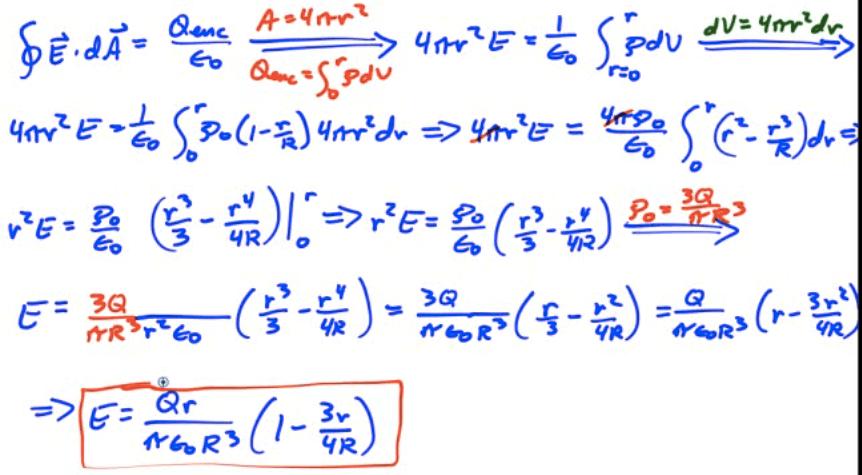 ∮E⃗·dA⃗ = Qenc/ϵ₀ A=4πr² Qenc=∫₀ʳρdV ⟹ 4πr²E = 1/ϵ₀ ∫ᵣ₌₀ʳ ρdV dV=4πr²dr ⟹
4πr²E = 1/ϵ₀ ∫₀ʳ ρ₀(1-r/R)4πr²dr => 4πr²E = 4πρ₀/ϵ₀ ∫₀ʳ(r²-r³/R)dr =>
r²E = ρ₀/ϵ₀ (r³/3 - r⁴/4R)|₀ʳ => r²E = ρ₀/ϵ₀ (r³/3 - r⁴/4R) ρ₀=3Q/πR³ ⟹
E = 3Q/πR³r²ϵ₀ (r³/3 - r⁴/4R) = 3Q/πϵ₀R³ (r/3 - r²/4R) = Q/πϵ₀R³ (r - 3r²/4R)
=> E = Qr/πϵ₀R³ (1 - 3r/4R)